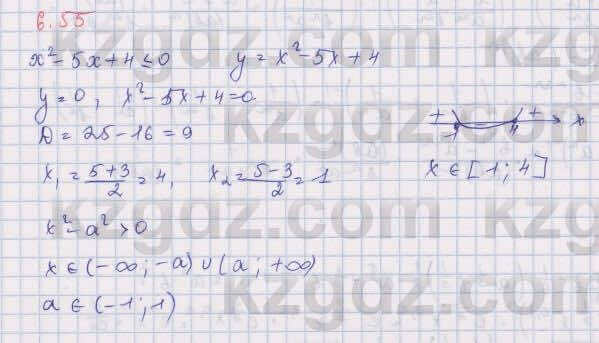 6.55
x² - 5x + 4 ≤ 0 y = x² - 5x + 4
y = 0, x² - 5x + 4 = 0
D = 25 - 16 = 9
+ + x
1 4
x₁ = (5+3)/2 = 4, x₂ = (5-3)/2 = 1 x ∈ [1; 4]
x² - a² > 0
x ∈ (-∞; -a) ∪ (a; +∞)
a ∈ (-1; 1)
kzgdz.com
kzgdz.com
kzgdz.com
kzgdz.com